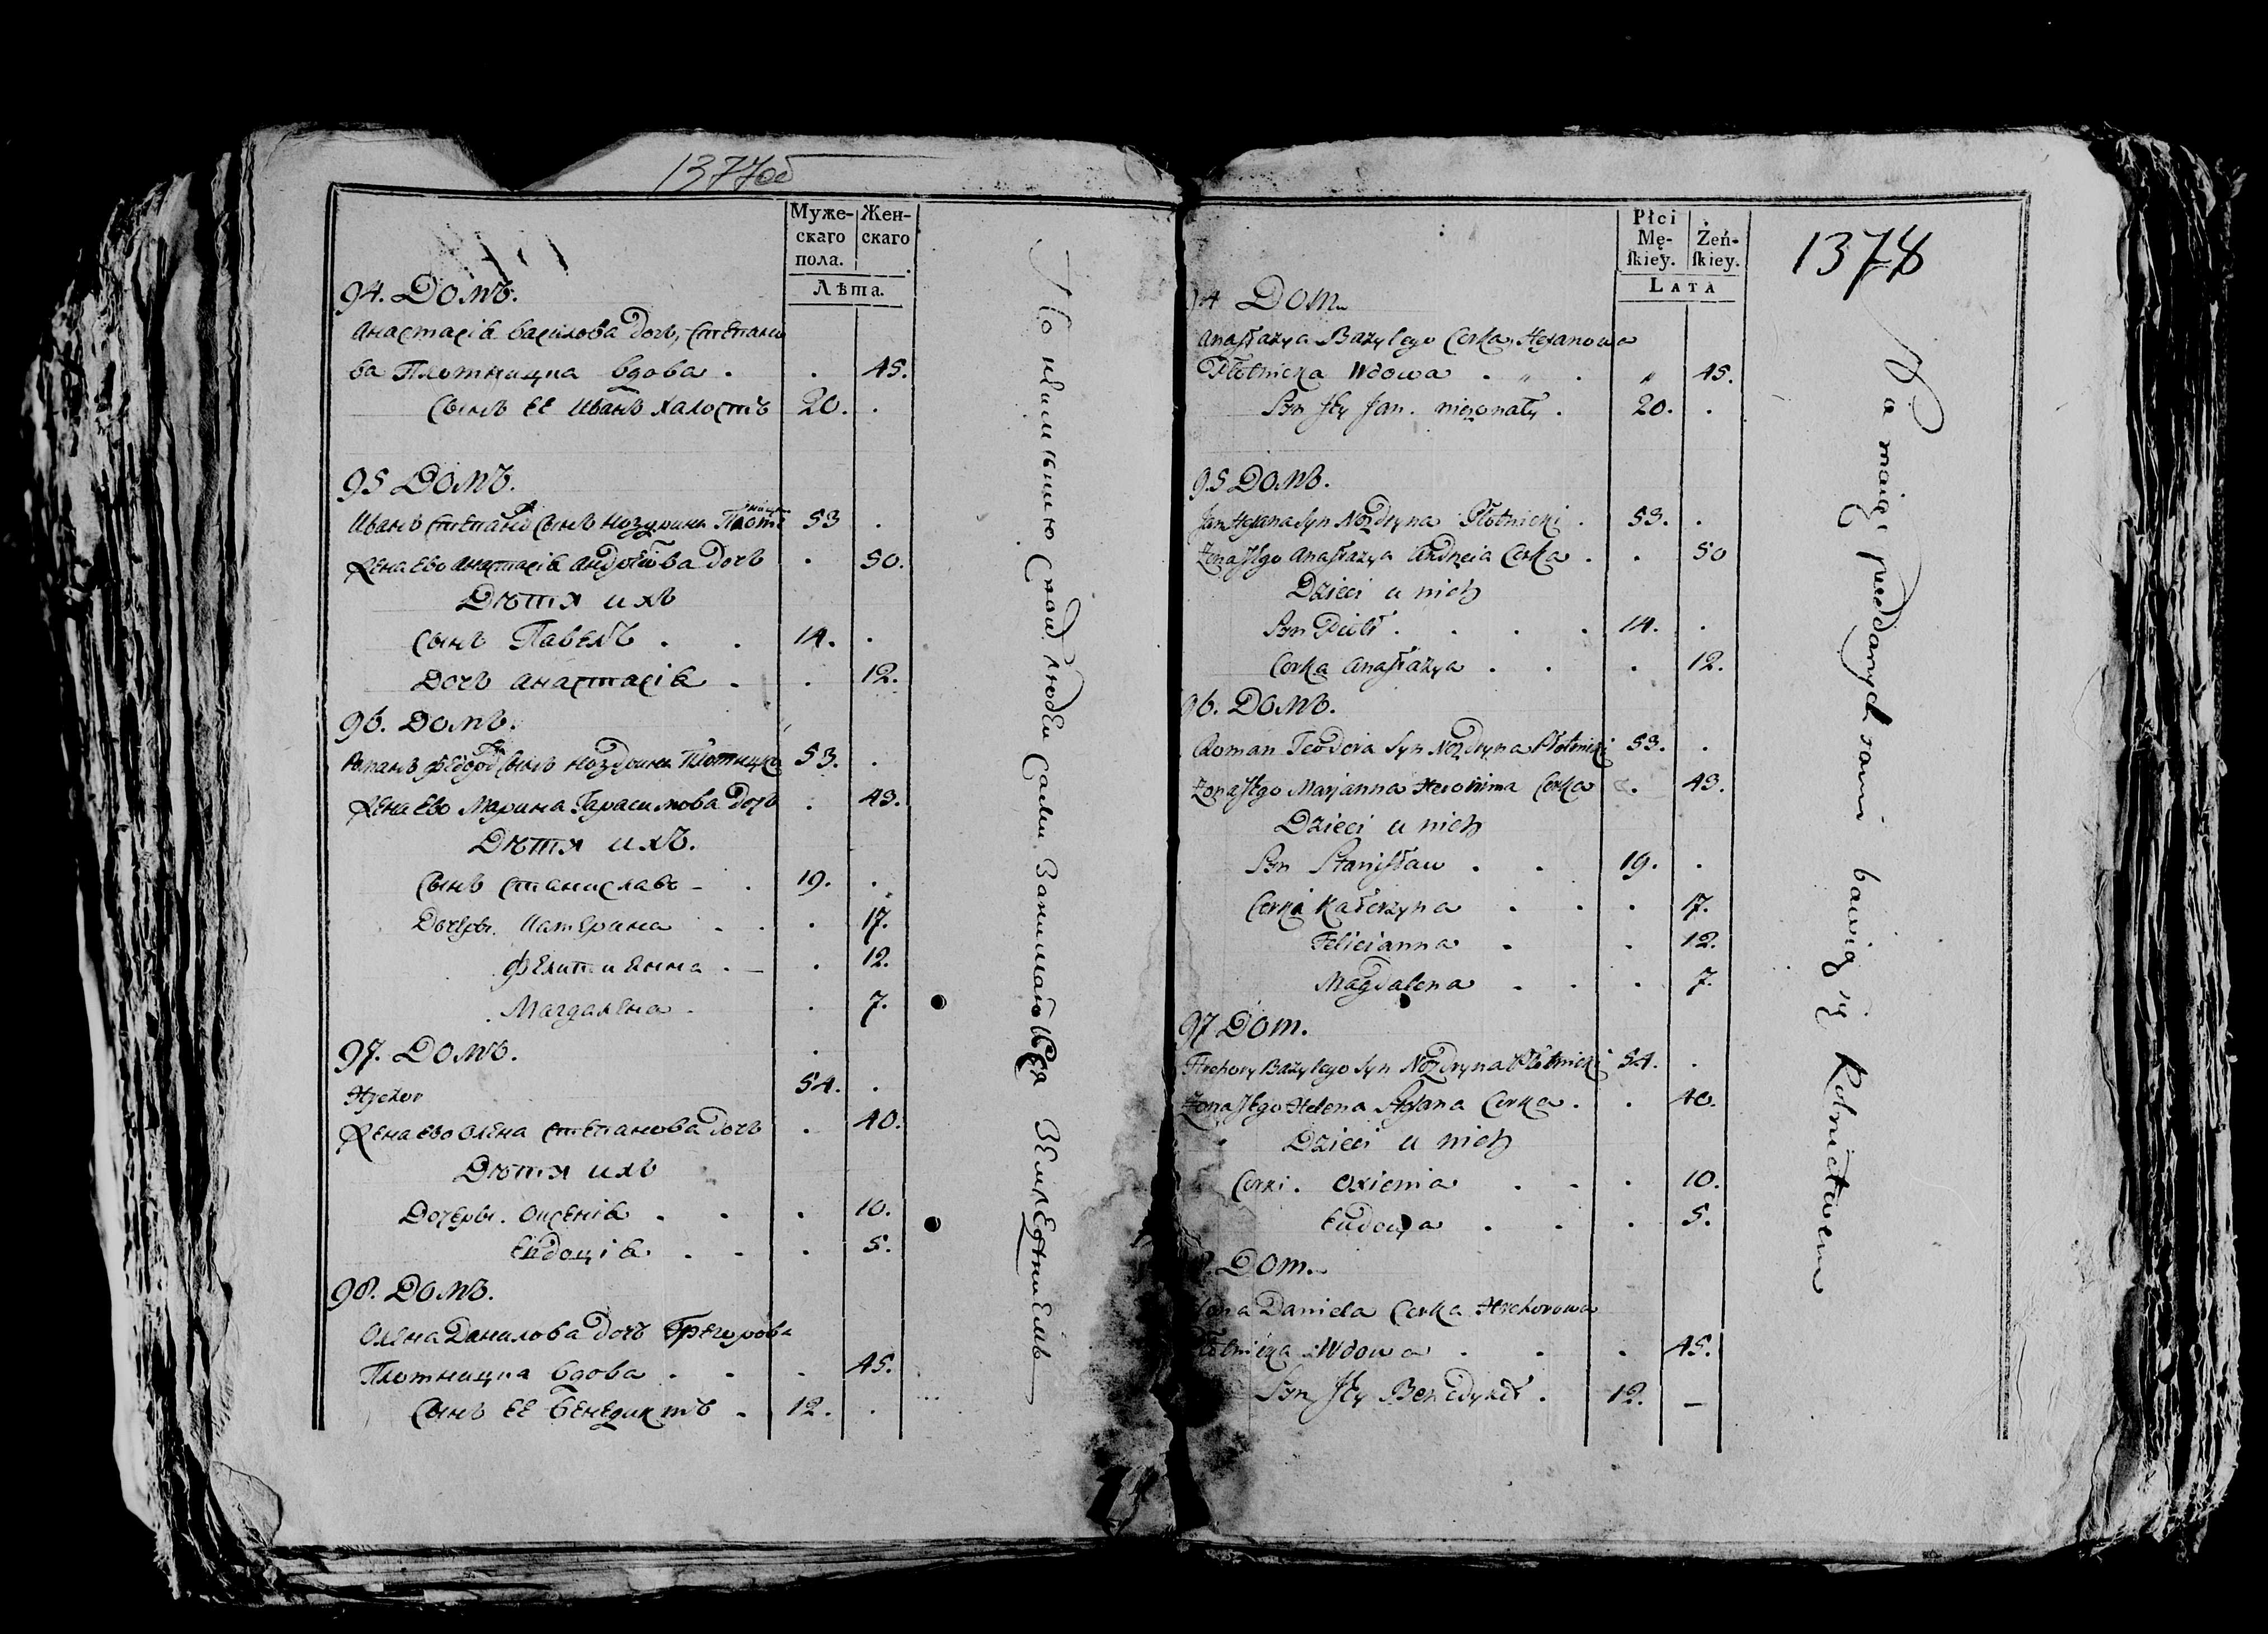 1377об
Муже- Жен-
скаго скаго
пола.
Лѣта.
94. Домъ.
Анастасіа Василова дочь, Степано
ва Плотницка вдова . . 45.
Сынъ ее Иванъ халостъ 20. .
95 Домъ.
Иванъ Степана Сынъ 53 .
Жена ево Анастасіа Андреева дочь . 50.
Дѣтя ихъ
Сынъ Павелъ . . 14. .
Дочь Анастасіа . . 12.
96. Домъ.
Романъ Федора Сынъ Ноздрина Плотницкі 53. .
Жена ево Марина Гарасимова дочь . 43.
Дѣтя ихъ.
Сынъ Станиславъ . 19. .
Дочеры. Катерина . . . 17.
Фелитиянна . . 12.
Магдалена . . 7.
97. Домъ.
Hrehor 54. .
Жена ево Олена Степанова дочь . 40.
Дѣтя ихъ
Дочеры. Оксеніа . . . 10.
Евдоціа . . . 5.
98. Домъ.
Олена Данилова дочь Грегорова
Плотницка вдова . . . 45.
Сынъ ее Бенедиктъ . 12. .
людей сами занимаются земледѣлиемъ
Płci
Mę- Żeń-
ſkiey. ſkiey.
LATA
1378
94 Dom
Anastazya Bazylego Corka, Stefanowa
Płotnicka Wdowa . „ . „ 45.
Syn Jey Jan. nieżonaty . 20. .
95 Домъ.
Jan Stefana Syn Nozdryna Płotnicki . 53. .
Żona Jego Anastazya Andrzeia Corka . . 50
Dzieci u nich
Syn Piotr . . . . 14. .
Corka Anastazya . . . 12.
96. Домъ.
Roman Teodora Syn Nozdryna Płotnicki 53. .
Żona Jego Marjanna Heronima Corka . 43.
Dzieci u nich
Syn Stanisław . . 19. .
Corki Katerzyna . . . 17.
Felicianna . . 12.
Magdalena . . . 7.
97 Dom.
Hrehory Bazylego Syn Nozdryna Płotnicki 54. .
Żona Jego Helena Stefana Corka . . 40.
Dzieci u nich
Corki. Oxienia . . . 10.
Eudocya . . . 5.
Dom.
Daniela Corka Hrehorowa
Wdowa . . . 45.
Syn Jey Benedykt . 12. –
Nie maią poddanych sami bawią się Rolnictwem